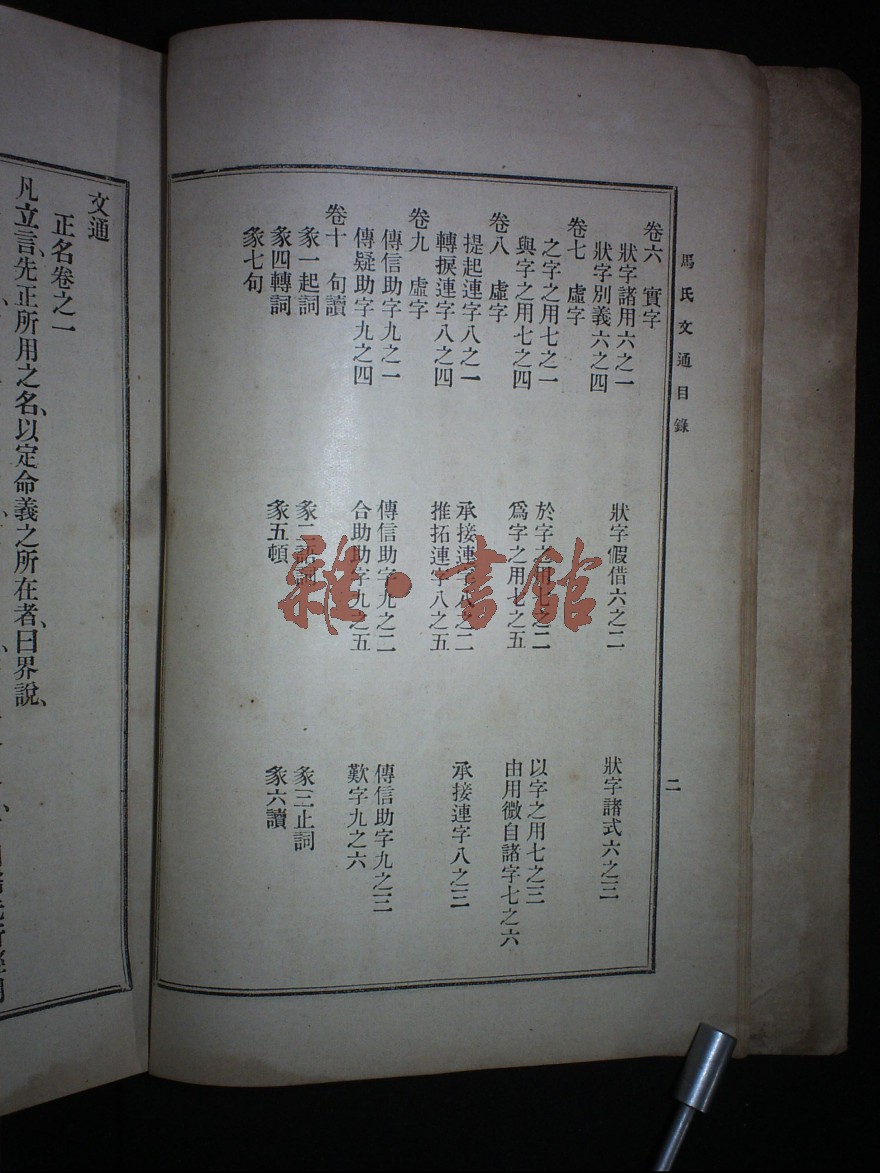 馬氏文通目錄
二
卷六 實字
狀字諸用六之一 狀字假借六之二 狀字諸式六之三
狀字別義六之四
卷七 虛字
之字之用七之一 於字之用七之二 以字之用七之三
與字之用七之四 爲字之用七之五 由用微自諸字七之六
卷八 虛字
提起連字八之一 承接連字八之二 承接連字八之三
轉捩連字八之四 推拓連字八之五
卷九 虛字
傳信助字九之一 傳信助字九之二 傳信助字九之三
傳疑助字九之四 合助助字九之五 歎字九之六
卷十 句讀
彖一起詞 彖二語詞 彖三止詞
彖四轉詞 彖五頓 彖六讀
彖七句
文通
正名卷之一
凡立言、先正所用之名、以定命義之所在者、曰界說、
雜·書館